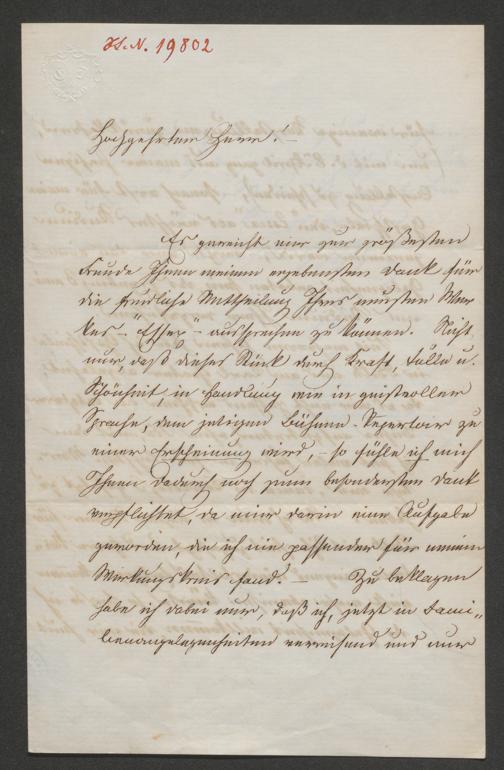 H.I.N. 19802
Hochgeehrter Herr! –
Es gereicht mir zur größesten
Freude Ihnen meinen ergebensten Dank für
die freundliche Mittheilung Ihres neusten Wer-
kes – "Essex" – aussprechen zu können. Nicht
nur, daß dieses Stück durch Kraft, Fülle u.
Schönheit, in Handlung wie in geistvoller
Sprache, dem jetzigen Bühnen-Repertoir zu
einer Erscheinung wird, – so fühle ich mich
Ihnen dadurch noch zum besondersten Dank
verpflichtet, da mir darin eine Aufgabe
geworden, die ich nie passender für meinen
Wirkungskreis fand. – Zu beklagen
habe ich dabei nur, daß ich, jetzt in Fami-
lienangelegenheiten verreisend und nur